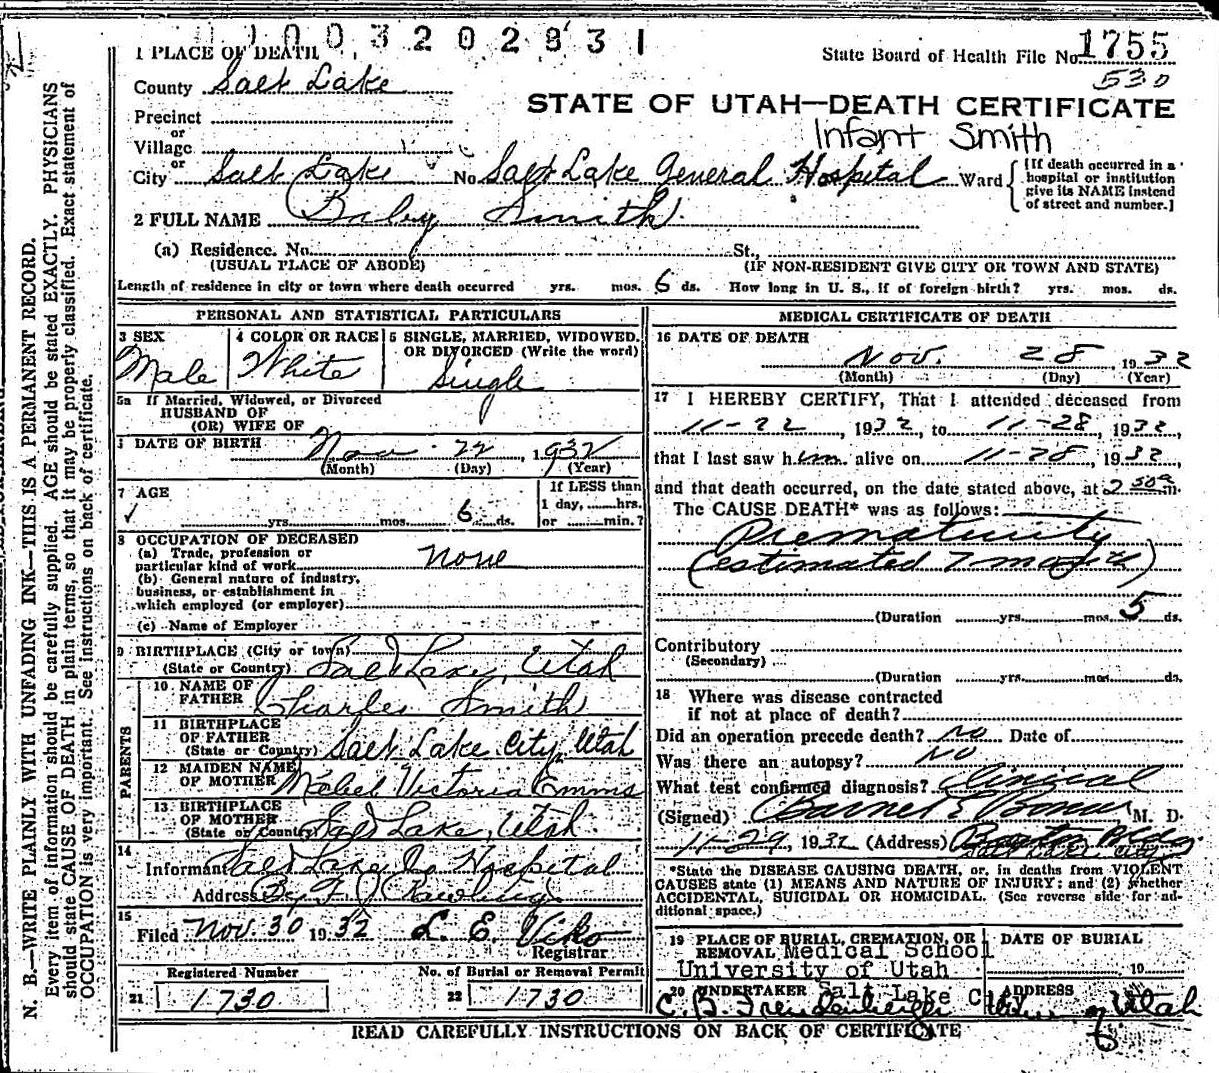 1003202831
1 PLACE OF DEATH
State Board of Health File No. 1755
530
County Salt Lake
STATE OF UTAH—DEATH CERTIFICATE
Precinct
or
Infant Smith
Village
or
City Salt Lake No. Salt Lake General Hospital Ward
[If death occurred in a hospital or institution give its NAME instead of street and number.]
2 FULL NAME Baby Smith
(a) Residence. No. St.,
(USUAL PLACE OF ABODE) (IF NON-RESIDENT GIVE CITY OR TOWN AND STATE)
Length of residence in city or town where death occurred yrs. mos. 6 ds. How long in U. S., if of foreign birth? yrs. mos. ds.
PERSONAL AND STATISTICAL PARTICULARS
3 SEX
Male
4 COLOR OR RACE
White
5 SINGLE, MARRIED, WIDOWED, OR DIVORCED (Write the word)
Single
5a If Married, Widowed, or Divorced
HUSBAND OF
(OR) WIFE OF
DATE OF BIRTH Nov 22, 1932
(Month) (Day) (Year)
7 AGE
yrs. mos. 6 ds.
If LESS than
1 day, hrs.
or min.?
8 OCCUPATION OF DECEASED
(a) Trade, profession or
particular kind of work none
(b) General nature of industry,
business, or establishment in
which employed (or employer)
(c) Name of Employer
9 BIRTHPLACE (City or town)
(State or Country) Salt Lake, Utah
PARENTS
10 NAME OF
FATHER Charles Smith
11 BIRTHPLACE
OF FATHER
(State or Country) Salt Lake City, Utah
12 MAIDEN NAME
OF MOTHER Mabel Victoria Emms
13 BIRTHPLACE
OF MOTHER
(State or Country) Salt Lake, Utah
14
Informant Salt Lake Co Hospital
Address By F J Rawlings
15
Filed Nov. 30 1932 L. E. Viko
Registrar
Registered Number
21 1730
No. of Burial or Removal Permit
22 1730
MEDICAL CERTIFICATE OF DEATH
16 DATE OF DEATH
Nov. 28 1932
(Month) (Day) (Year)
17 I HEREBY CERTIFY, That I attended deceased from
11-22, 1932, to 11-28, 1932,
that I last saw him alive on 11-28, 1932,
and that death occurred, on the date stated above, at 2 50a m.
The CAUSE DEATH* was as follows:
Prematurity
(estimated 7 months)
(Duration yrs. mos. 5 ds.
Contributory
(Secondary)
(Duration yrs. mos. ds.
18 Where was disease contracted
if not at place of death?
Did an operation precede death? No Date of
Was there an autopsy? No
What test confirmed diagnosis? Clinical
(Signed) M. D.
11-29, 1932 (Address) Bldg
Salt Lake City
*State the DISEASE CAUSING DEATH, or, in deaths from VIOLENT
CAUSES state (1) MEANS AND NATURE OF INJURY: and (2) whether
ACCIDENTAL, SUICIDAL OR HOMICIDAL. (See reverse side for ad-
ditional space.)
19 PLACE OF BURIAL, CREMATION, OR
REMOVAL Medical School
University of Utah
DATE OF BURIAL
19
20 UNDERTAKER Salt Lake City
ADDRESS
C. B. of Utah
READ CAREFULLY INSTRUCTIONS ON BACK OF CERTIFICATE
N. B.—WRITE PLAINLY WITH UNFADING INK—THIS IS A PERMANENT RECORD.
Every item of information should be carefully supplied. AGE should be stated EXACTLY. PHYSICIANS
should state CAUSE OF DEATH in plain terms, so that it may be properly classified. Exact statement of
OCCUPATION is very important. See instructions on back of certificate.